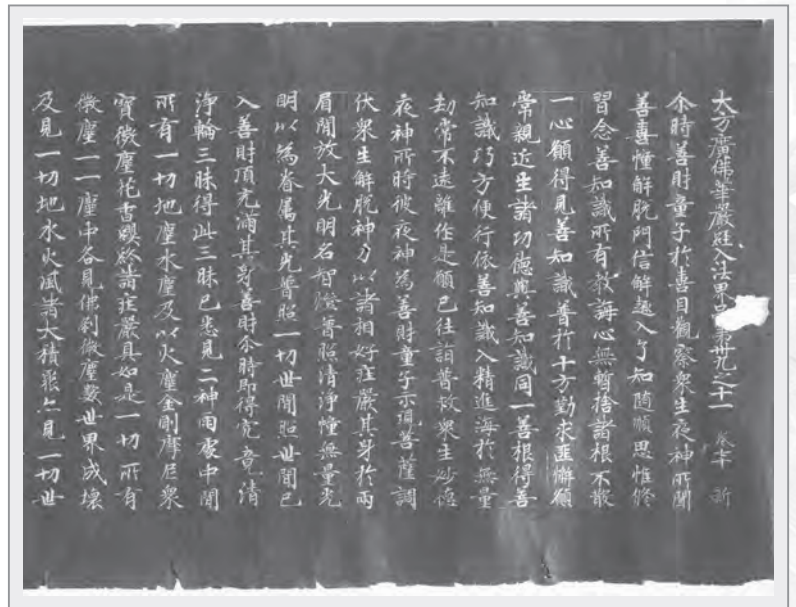 大方廣佛華嚴經入法界品第卅九之十一 卷七十 新
尒時善財童子於喜目觀察衆生夜神所聞
普喜幢解脫門信解趣入了知隨順思惟修
習念善知識所有教誨心無暫捨諸根不散
一心願得見善知識普於十方勤求匪懈願
常親近生諸功德與善知識同一善根得善
知識巧方便行依善知識入精進海於無量
劫常不遠離作是願已往詣普救衆生妙德
夜神所時彼夜神為善財童子示現菩薩調
伏衆生解脫神力以諸相好莊嚴其身於兩
眉間放大光明名智燈普照清淨幢無量光
明以為眷屬其光普照一切世間照世間已
入善財頂充滿其身善財尒時即得究竟清
淨輪三昧得此三昧已悉見二神兩處中間
所有一切地塵水塵及以火塵金剛摩尼衆
寶微塵花香瓔珞諸莊嚴具如是一切所有
微塵一一塵中各見佛剎微塵數世界成壞
及見一切地水火風諸大積聚亦見一切世